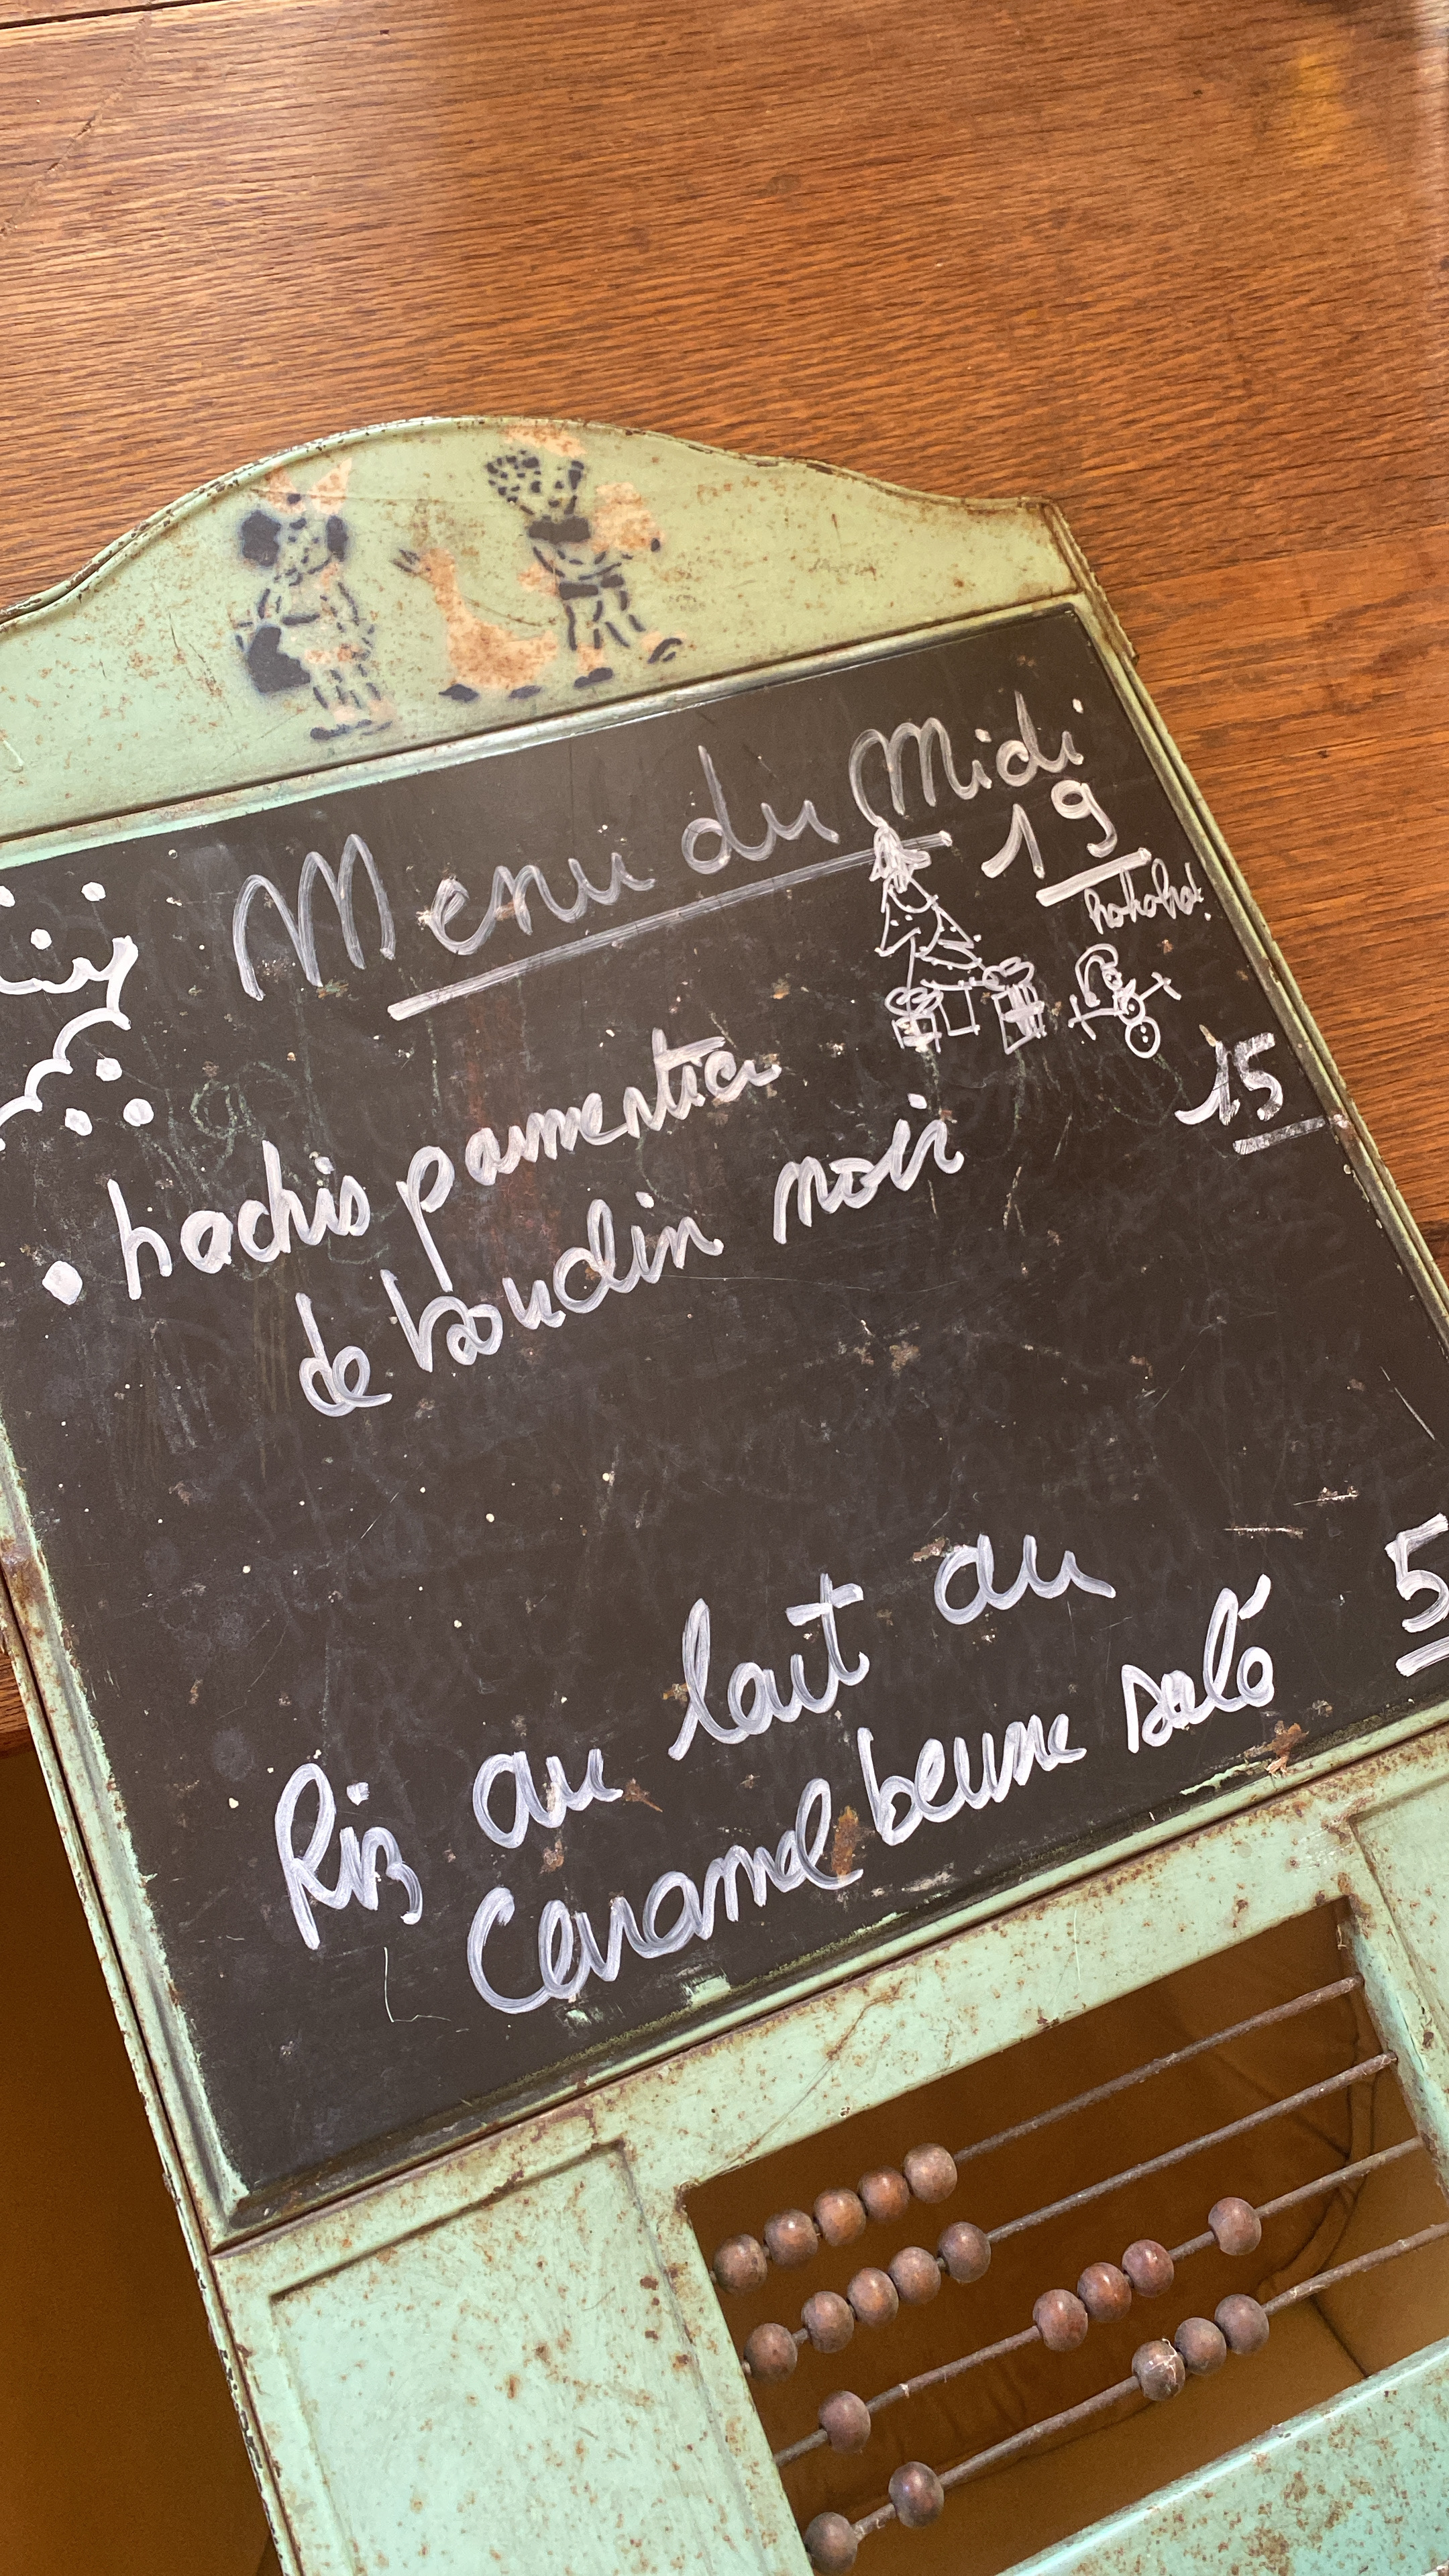 Menu du Midi
19
hohoho!
15
• hachis parmentier
de boudin noir
Riz au lait au
5
Caramel beurre salé